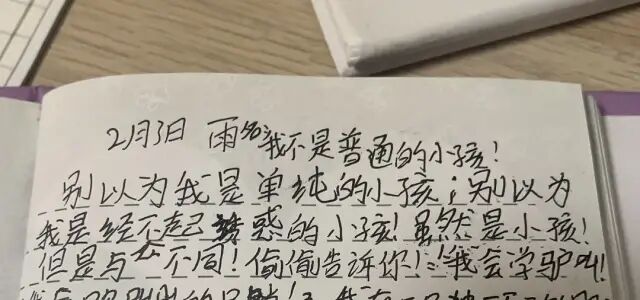 2月3日 雨 我不是普通的小孩!
别以为我是单纯的小孩;别以为
我是经不起诱惑的小孩!虽然是小孩!
但是与大不同!偷偷告诉你!:"我会学驴叫!